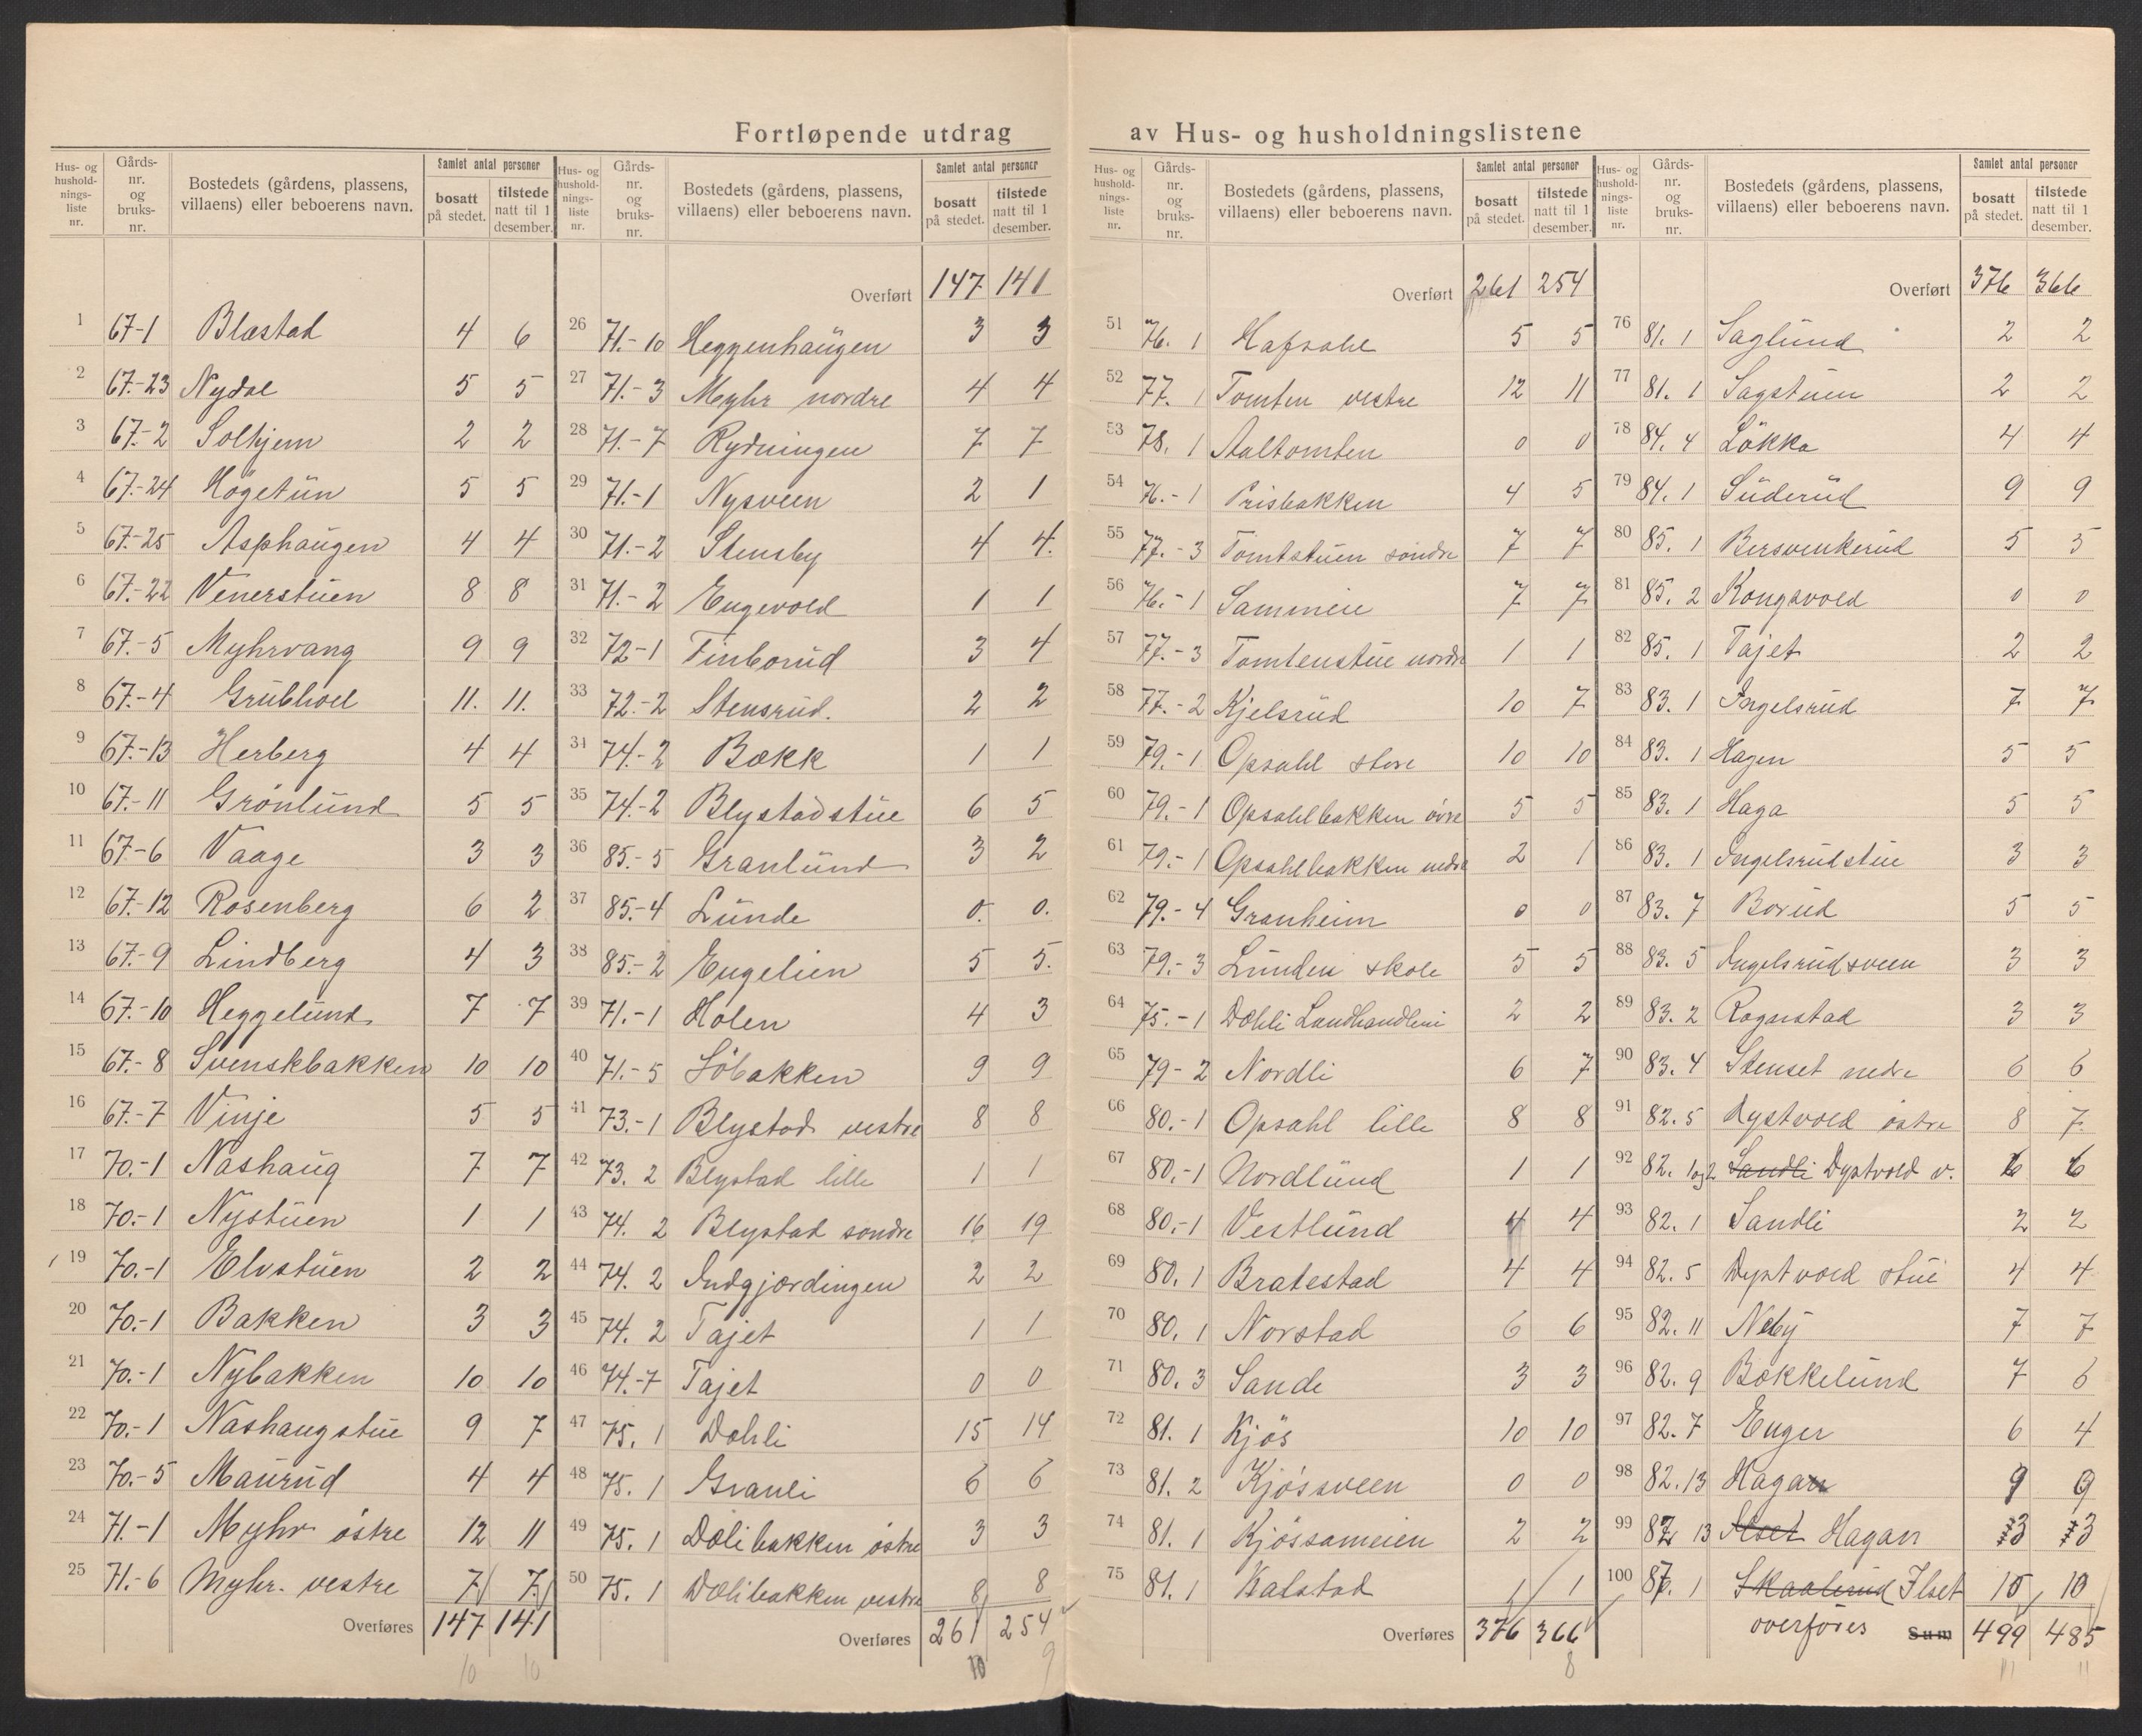 Fortløpende utdrag av Hus- og husholdningslistene
Hus- og husholdnings-liste nr. Gårds-nr. og bruks-nr. Bostedets (gårdens, plassens, villaens) eller beboerens navn. Samlet antal personer bosatt på stedet. tilstede natt til 1 desember.
1 67-1 Blæstad 4 6
2 67.-23 Nydal 5 5
3 67.-2 Solhjem 2 2
4 67.-24 Høgetun 5 5
5 67.-25 Asphaugen 4 4
6 67.-22 Venerstuen 8 8
7 67.-5 Myhrvang 9 9
8 67.-4 Grubhoel 11. 11.
9 67.-13 Herberg 4 4
10 67.-11 Grönlund 5 5
11 67.-6 Vaage 3 3
12 67.-12 Rosenberg 6 2
13 67.-9 Lindberg 4 3
14 67.-10 Heggelund 7 7
15 67.-8 Svenskbakken 10 10
16 67.-7 Vinje 5 5
17 70.-1 Nashaug 7 7
18 70.-1 Nystuen 1 1
19 70.-1 Elvstuen 2 2
20 70.-1 Bakken 3 3
21 70.-1 Nybakken 10 10
22 70.-1 Nashaugstue 9 7
23 70.-5 Maurud 4 4
24 71.-1 Myhr östre 12 11
25 71.-6 Myhr. vestre 7 7
Overføres 147 141
10 10
Hus- og husholdnings-liste nr. Gårds-nr. og bruks-nr. Bostedets (gårdens, plassens, villaens) eller beboerens navn. Samlet antal personer bosatt på stedet. tilstede natt til 1 desember.
Overført 147 141
26 71.-10 Heggenhaugen 3 3
27 71.-3 Myhr nordre 4 4
28 71.-7 Rydningen 7 7
29 71.-1 Nysveen 2 1
30 71.-2 Stensby 4 4.
31 71.-2 Engevold 1 1
32 72-1 Finborud 3 4
33 72.-2 Stensrud. 2 2
34 74.-2 Bækk 1 1
35 74.-2 Blystadstue 6 5
36 85.-5 Granlund 3 2
37 85.-4 Lunde 0. 0.
38 85.-2 Engelien 5 5.
39 71.-1 Holen 4 3
40 71.-5 Löbakken 9 9
41 73.-1 Blystad vestre 8 8
42 73. 2 Blystad lille 1 1
43 74. 2 Blystad sondre 16 19
44 74. 2 Indgjærdingen 2 2
45 74. 2 Tajet 1 1
46 74.-7 Tajet 0 0
47 75. 1 Dæhli 15 14
48 75. 1 Granli 6 6
49 75. 1 Dælibakken östre 3 3
50 75. 1 Dælibakken vestre 8 8
Overføres 261 254
10 9
Hus- og husholdnings-liste nr. Gårds-nr. og bruks-nr. Bostedets (gårdens, plassens, villaens) eller beboerens navn. Samlet antal personer bosatt på stedet. tilstede natt til 1 desember.
Overført 261 254
51 76. 1 Hafsahl 5 5
52 77. 1 Tomten vestre 12 11
53 78. 1 Aaltomten 0 0
54 76.-1 Prisbakken 4 5
55 77.-3 Tomtstuen söndre 7 7
56 76.-1 Sammeie 7 7
57 77.-3 Tomtenstue nordre 1 1
58 77.-2 Kjelsrud 10 7
59 79.-1 Opsahl store 10 10
60 79.-1 Opsahlbakken övre 5 5
61 79.-1 Opsahlbakken nedre 2 1
62 79.-4 Granheim 0 0
63 79.-3 Lunden skole 5 5
64 75.-1 Dæhli Landhandleri 2 2
65 79-2 Nordli 6 7
66 80.-1 Opsahl lille 8 8
67 80.-1 Nordlund 1 1
68 80.-1 Vestlund 4 4
69 80. 1 Bratestad 4 4
70 80. 1 Norstad 6 6
71 80. 3 Sande 3 3
72 81. 1 Kjös 10 10
73 81. 2 Kjössveen 0 0
74 81. 1 Kjössameien 2 2
75 81. 1 Kalstad 1 1
Overføres 376 366
8
Hus- og husholdnings-liste nr. Gårds-nr. og bruks-nr. Bostedets (gårdens, plassens, villaens) eller beboerens navn. Samlet antal personer bosatt på stedet. tilstede natt til 1 desember.
Overført 376 366
76 81. 1 Saglund 2 2
77 81. 1 Sagstuen 2 2
78 84. 4 Lökka 4 4
79 84. 1 Suderud 9 9
80 85. 1 Bersvenkerud 5 5
81 85. 2 Kongsvold 0 0
82 85. 1 Tajet 2 2
83 83. 1 Ingelsrud 7 7
84 83. 1 Hagen 5 5
85 83. 1 Haga 5 5
86 83. 1 Ingelsrudstue 3 3
87 83. 7 Borud 5 5
88 83. 5 Ingelsrudsveen 3 3
89 83. 2 Roganstad 3 3
90 83. 4 Stenset nedre 6 6
91 82. 5 Dystvold östre 8 7
92 82. 1og2 Sandli Dystvold v. 6 6
93 82. 1 Sandli 2 2
94 82. 5 Dystvold stue 4 4
95 82. 11 Neby 7 7
96 82. 9 Bækkelund 7 6
97 82. 7 Enger 6 4
98 82. 13 Hagan 9 9
99 82 13 Ilset Hagan 3 3
100 87. 1 Skaalerud Ilset 10 10
overföres Sum 499 485
11 11